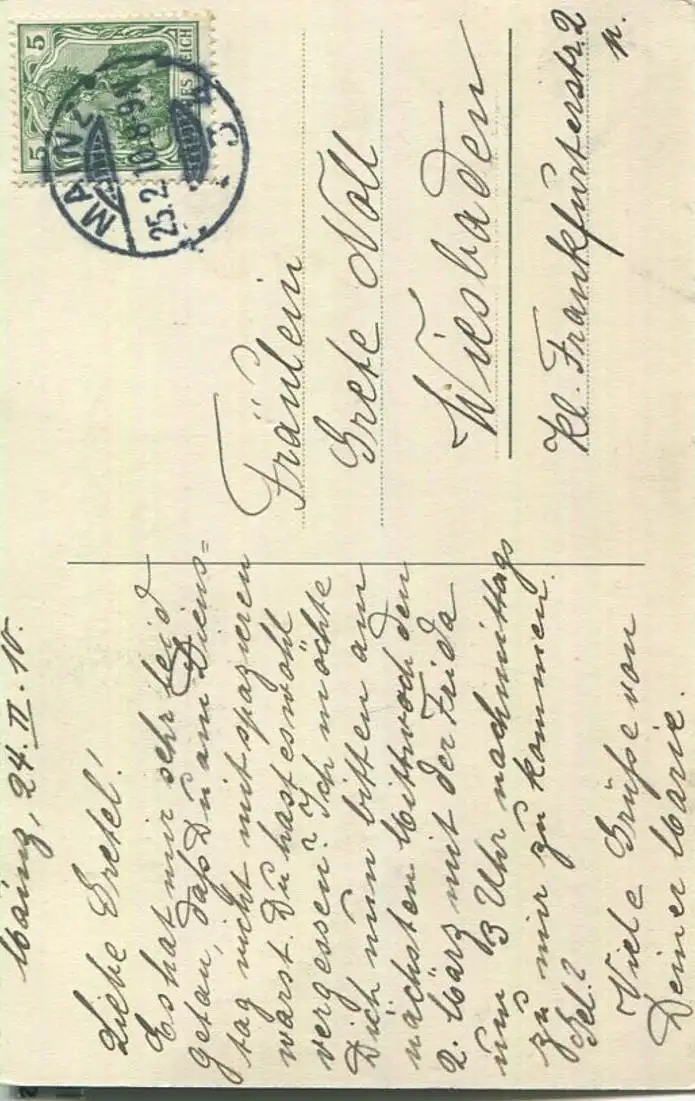 Mainz, 24. II. 10.
Liebe Gretel!
Es hat mir sehr leid
getan, daß Du am Diens=
tag nicht mit spazieren
warst. Du hast es wohl
vergessen? Ich möchte
Dich nun bitten am
nächsten Mittwoch den
2. März mit der Frida
um 3 Uhr nachmittags
zu mir zu kommen.
Viele Grüße von
Deiner Marie.
5 5
ES REICH
MAINZ
25.2.10.8-9N
Fräulein
Grete Noll
Wiesbaden
Kl. Frankfurterstr. 2
p.